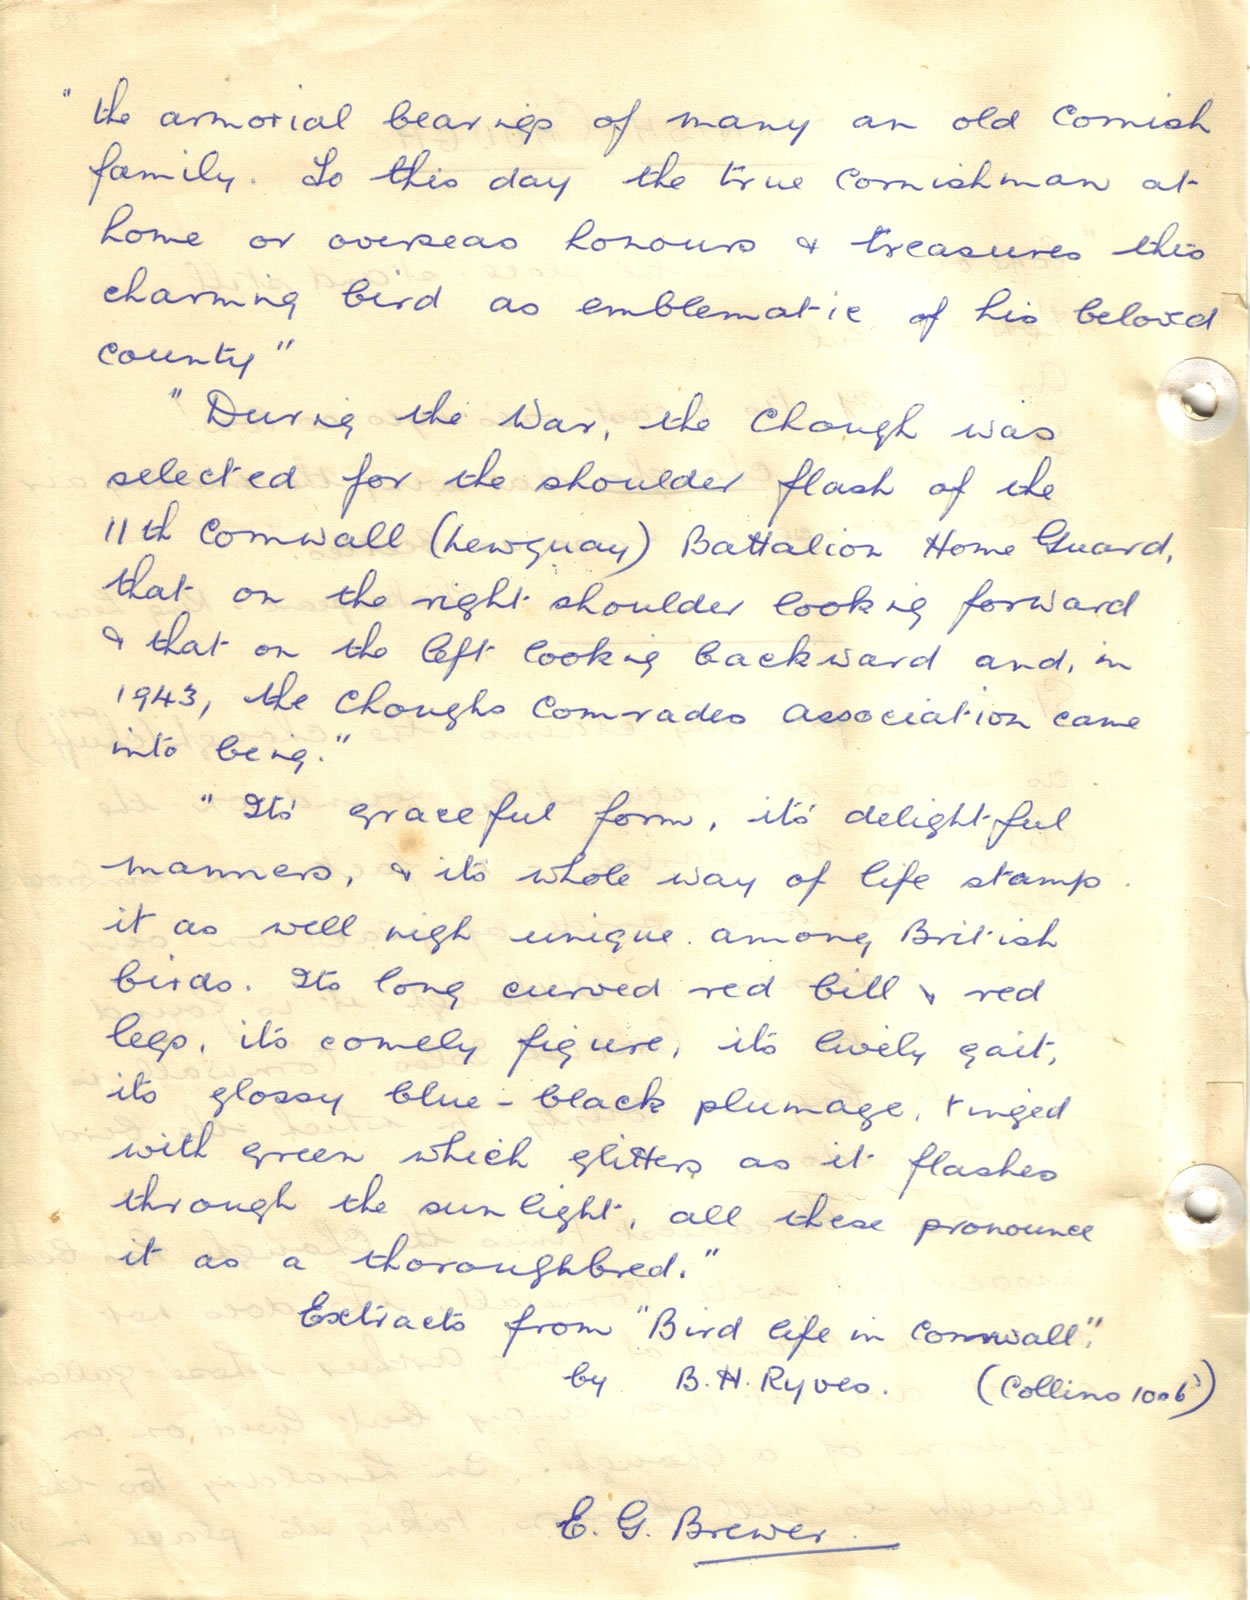 " the armorial bearings of many an old Cornish
family. To this day the true Cornishman at
home or overseas honours & treasures this
charming bird as emblematic of his beloved
county"
" During the War, the Chough was
selected for the shoulder flash of the
11th Cornwall (Newquay) Battalion Home Guard,
that on the right shoulder looking forward
& that on the left looking backward and, in
1943, the Choughs Comrades Association came
into being."
" Its' graceful form, its' delightful
manners, & its whole way of life stamp
it as well nigh unique among British
birds. Its long curved red bill & red
legs, its comely figure, its lively gait,
its glossy blue-black plumage, tinged
with green which glitters as it flashes
through the sunlight, all these pronounce
it as a thoroughbred."
Extracts from "Bird life in Cornwall".
by B.H. Ryves. (Collins 10s 6d)
E. G. Brewer.